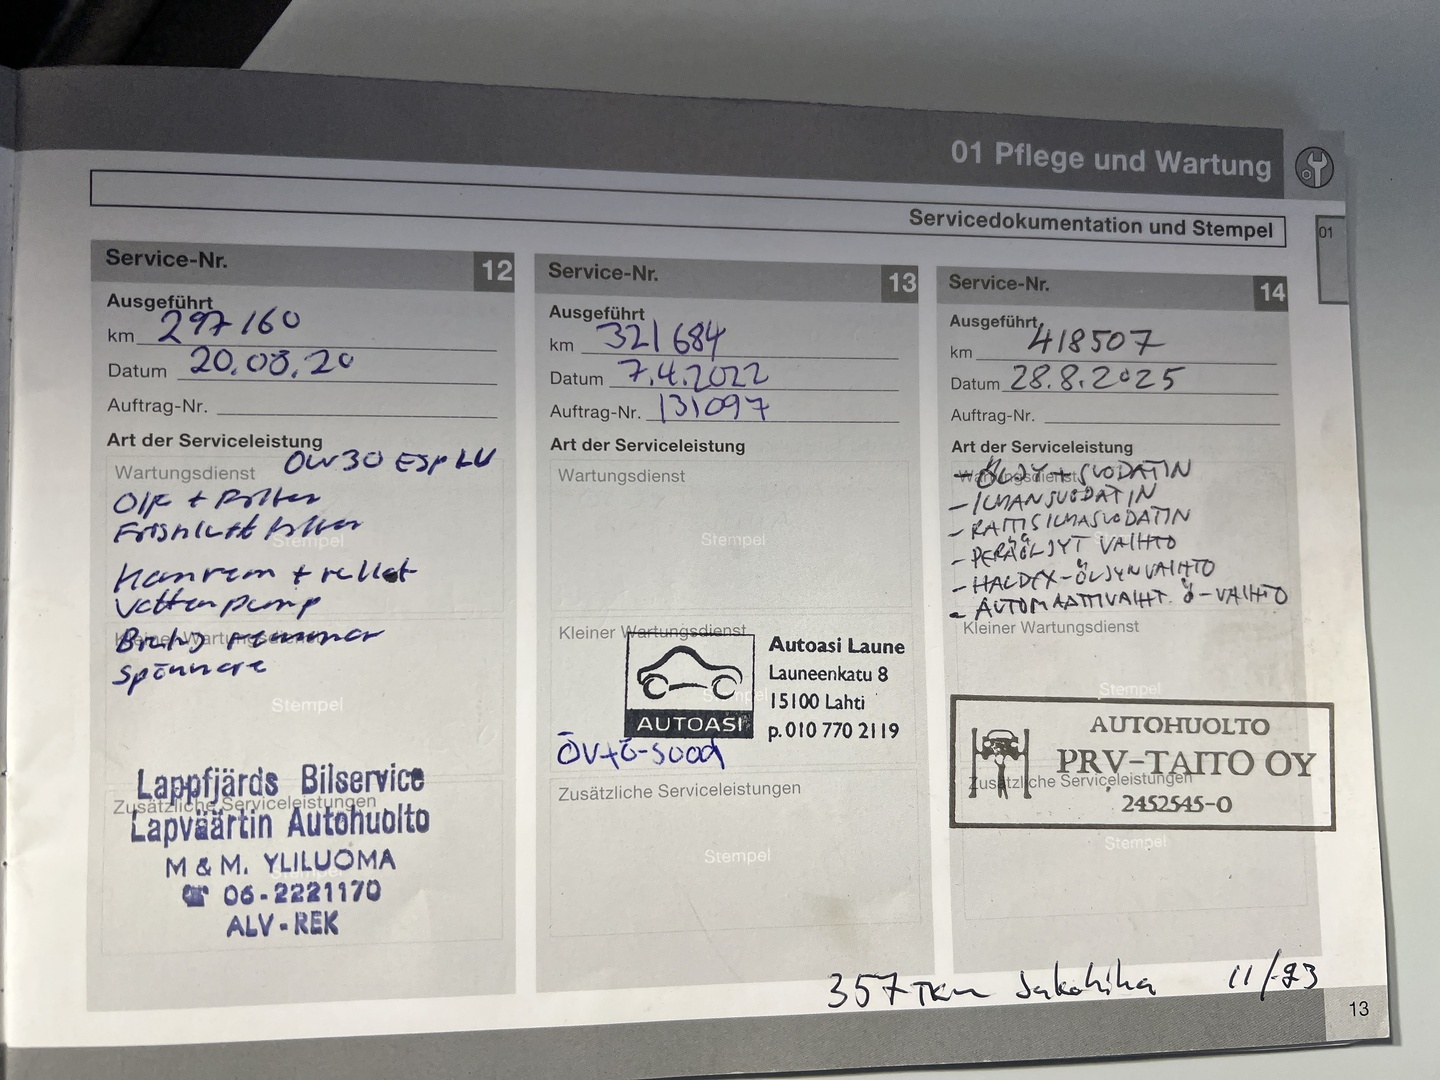 01 Pflege und Wartung
Servicedokumentation und Stempel
01
Service-Nr. 12
Ausgeführt
km 297160
Datum 20.08.20
Auftrag-Nr.
Art der Serviceleistung
0W30 ESP LV
Wartungsdienst
Olje + Filter
Friskluft filter
Stempel
Kamrem + rullar
Vattenpump
Kleiner Wartungsdienst
remmar
Spännare
Stempel
Lappfjärds Bilservice
Zusätzliche Serviceleistungen
Lapväärtin Autohuolto
M & M. YLILUOMA
Stempel
☎ 06-2221170
ALV-REK
Service-Nr. 13
Ausgeführt
km 321684
Datum 7.4.2022
Auftrag-Nr. 131097
Art der Serviceleistung
Wartungsdienst
Stempel
Kleiner Wartungsdienst
Autoasi Laune
Launeenkatu 8
Stempel
15100 Lahti
AUTOASI
p. 010 770 2119
ÖV+Ö-suod
Zusätzliche Serviceleistungen
Stempel
Service-Nr. 14
Ausgeführt
km 418507
Datum 28.8.2025
Auftrag-Nr.
Art der Serviceleistung
Wartungsdienst
- ÖLJY + SUODATIN
- ILMANSUODATIN
- RAITISILMASUODATIN
- PERÄÖLJYT VAIHTO
- HALDEX-ÖLJYNVAIHTO
- AUTOMAATTIVAIHT. Ö-VAIHTO
Kleiner Wartungsdienst
Stempel
AUTOHUOLTO
PRV-TAITO OY
Zusätzliche Serviceleistungen
2452545-0
Stempel
357 TKM Jakohihna 11/-23
13